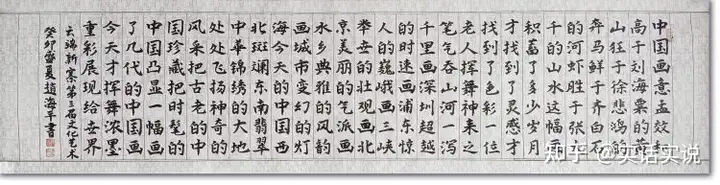 中国画意效
高于刘海粟的黄
山狂于徐悲鸿的
奔马鲜于齐白石
的河虾胜于张大
千的山水
积蓄了多少岁月
才找到了灵感才
找到了色彩一位
老人挥舞神来之
笔气吞山河一泻
千里画深圳超越
的时速画浦东惊
人的巍峨画三峡
举世的壮观画北
京美丽的气派画
水乡典雅的风韵
画城市变幻的灯
海今天的中国西
北斑斓东南翡翠
中华锦绣的大地
处处飞扬神奇的
风采把古老的中
国珍藏把时髦的
中国凸显一幅画
画了几代的中国画
今天才挥舞浓墨
重彩展现给世界
云端新寨第三届文化艺术
癸卯盛夏赵海平书
知乎 @实话实说